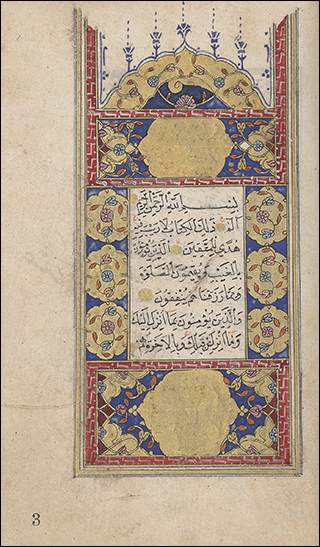 بسم الله الرحمن الرحيم
الم ذلك الكتاب لا ريب فيه
هدى للمتقين الذين يؤمنون
بالغيب ويقيمون الصلوة
ومما رزقناهم ينفقون
والذين يؤمنون بما انزل اليك
وما انزل من قبلك وبالاخرة هم
3